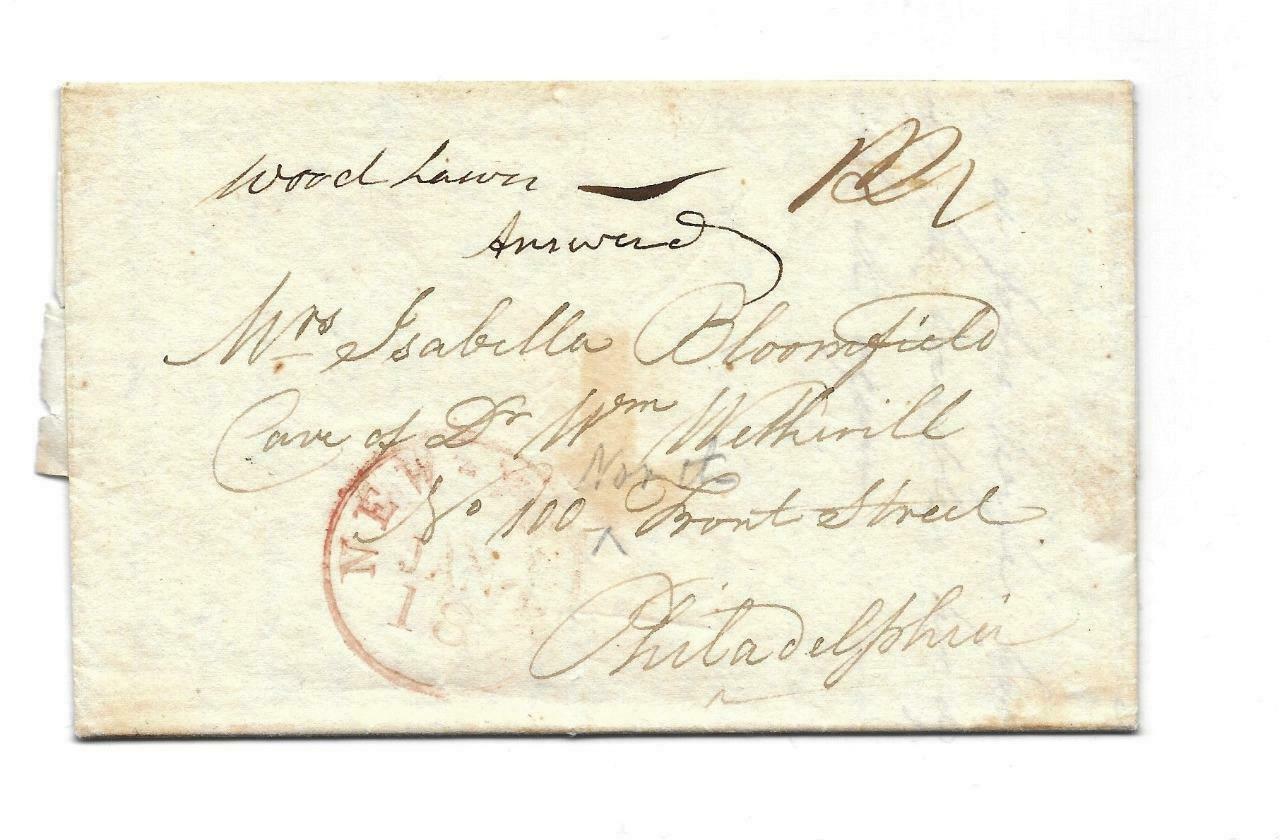 Wood Lawn
Answerd
Mrs Isabella Bloomfield
Care of Dr Wm Wetherill
North
No 100 ^ Front Street
Philadelphia
NEW-
JAN
18